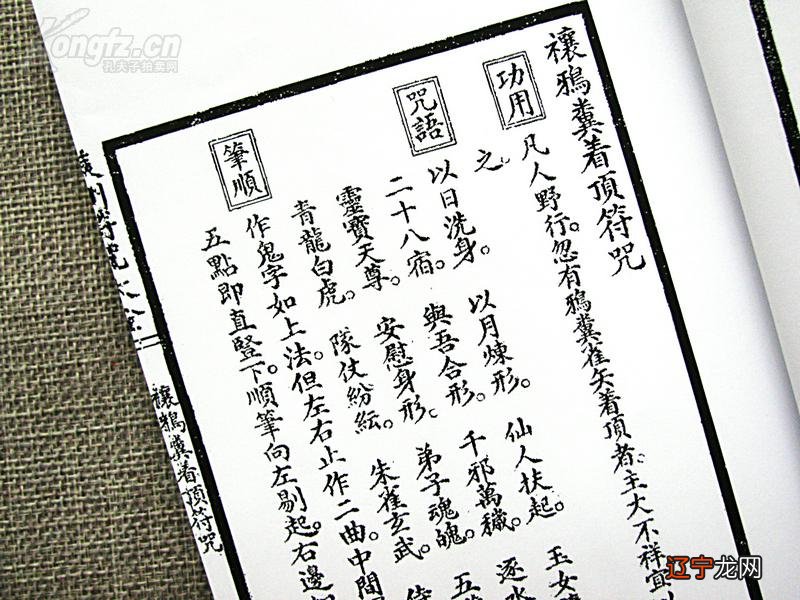 禳鴉糞着頂符咒
功用
凡人野行。忽有鴉糞雀矢着頂者。主大不祥宜
之。
咒語
以日洗身。 以月煉形。 仙人扶起。 玉女
二十八宿。 與吾合形。 千邪萬穢。 逐水
靈寶天尊。 安慰身形。 弟子魂魄。 五
青龍白虎。 隊仗紛紜。 朱雀玄武。 侍
筆順
作鬼字如上法。但左右止作二曲。中間
五點即直豎下。順筆向左剔起。右邊
符咒大全
禳鴉糞着頂符咒
Kongfz.cn
孔夫子拍卖网
辽宁龙网